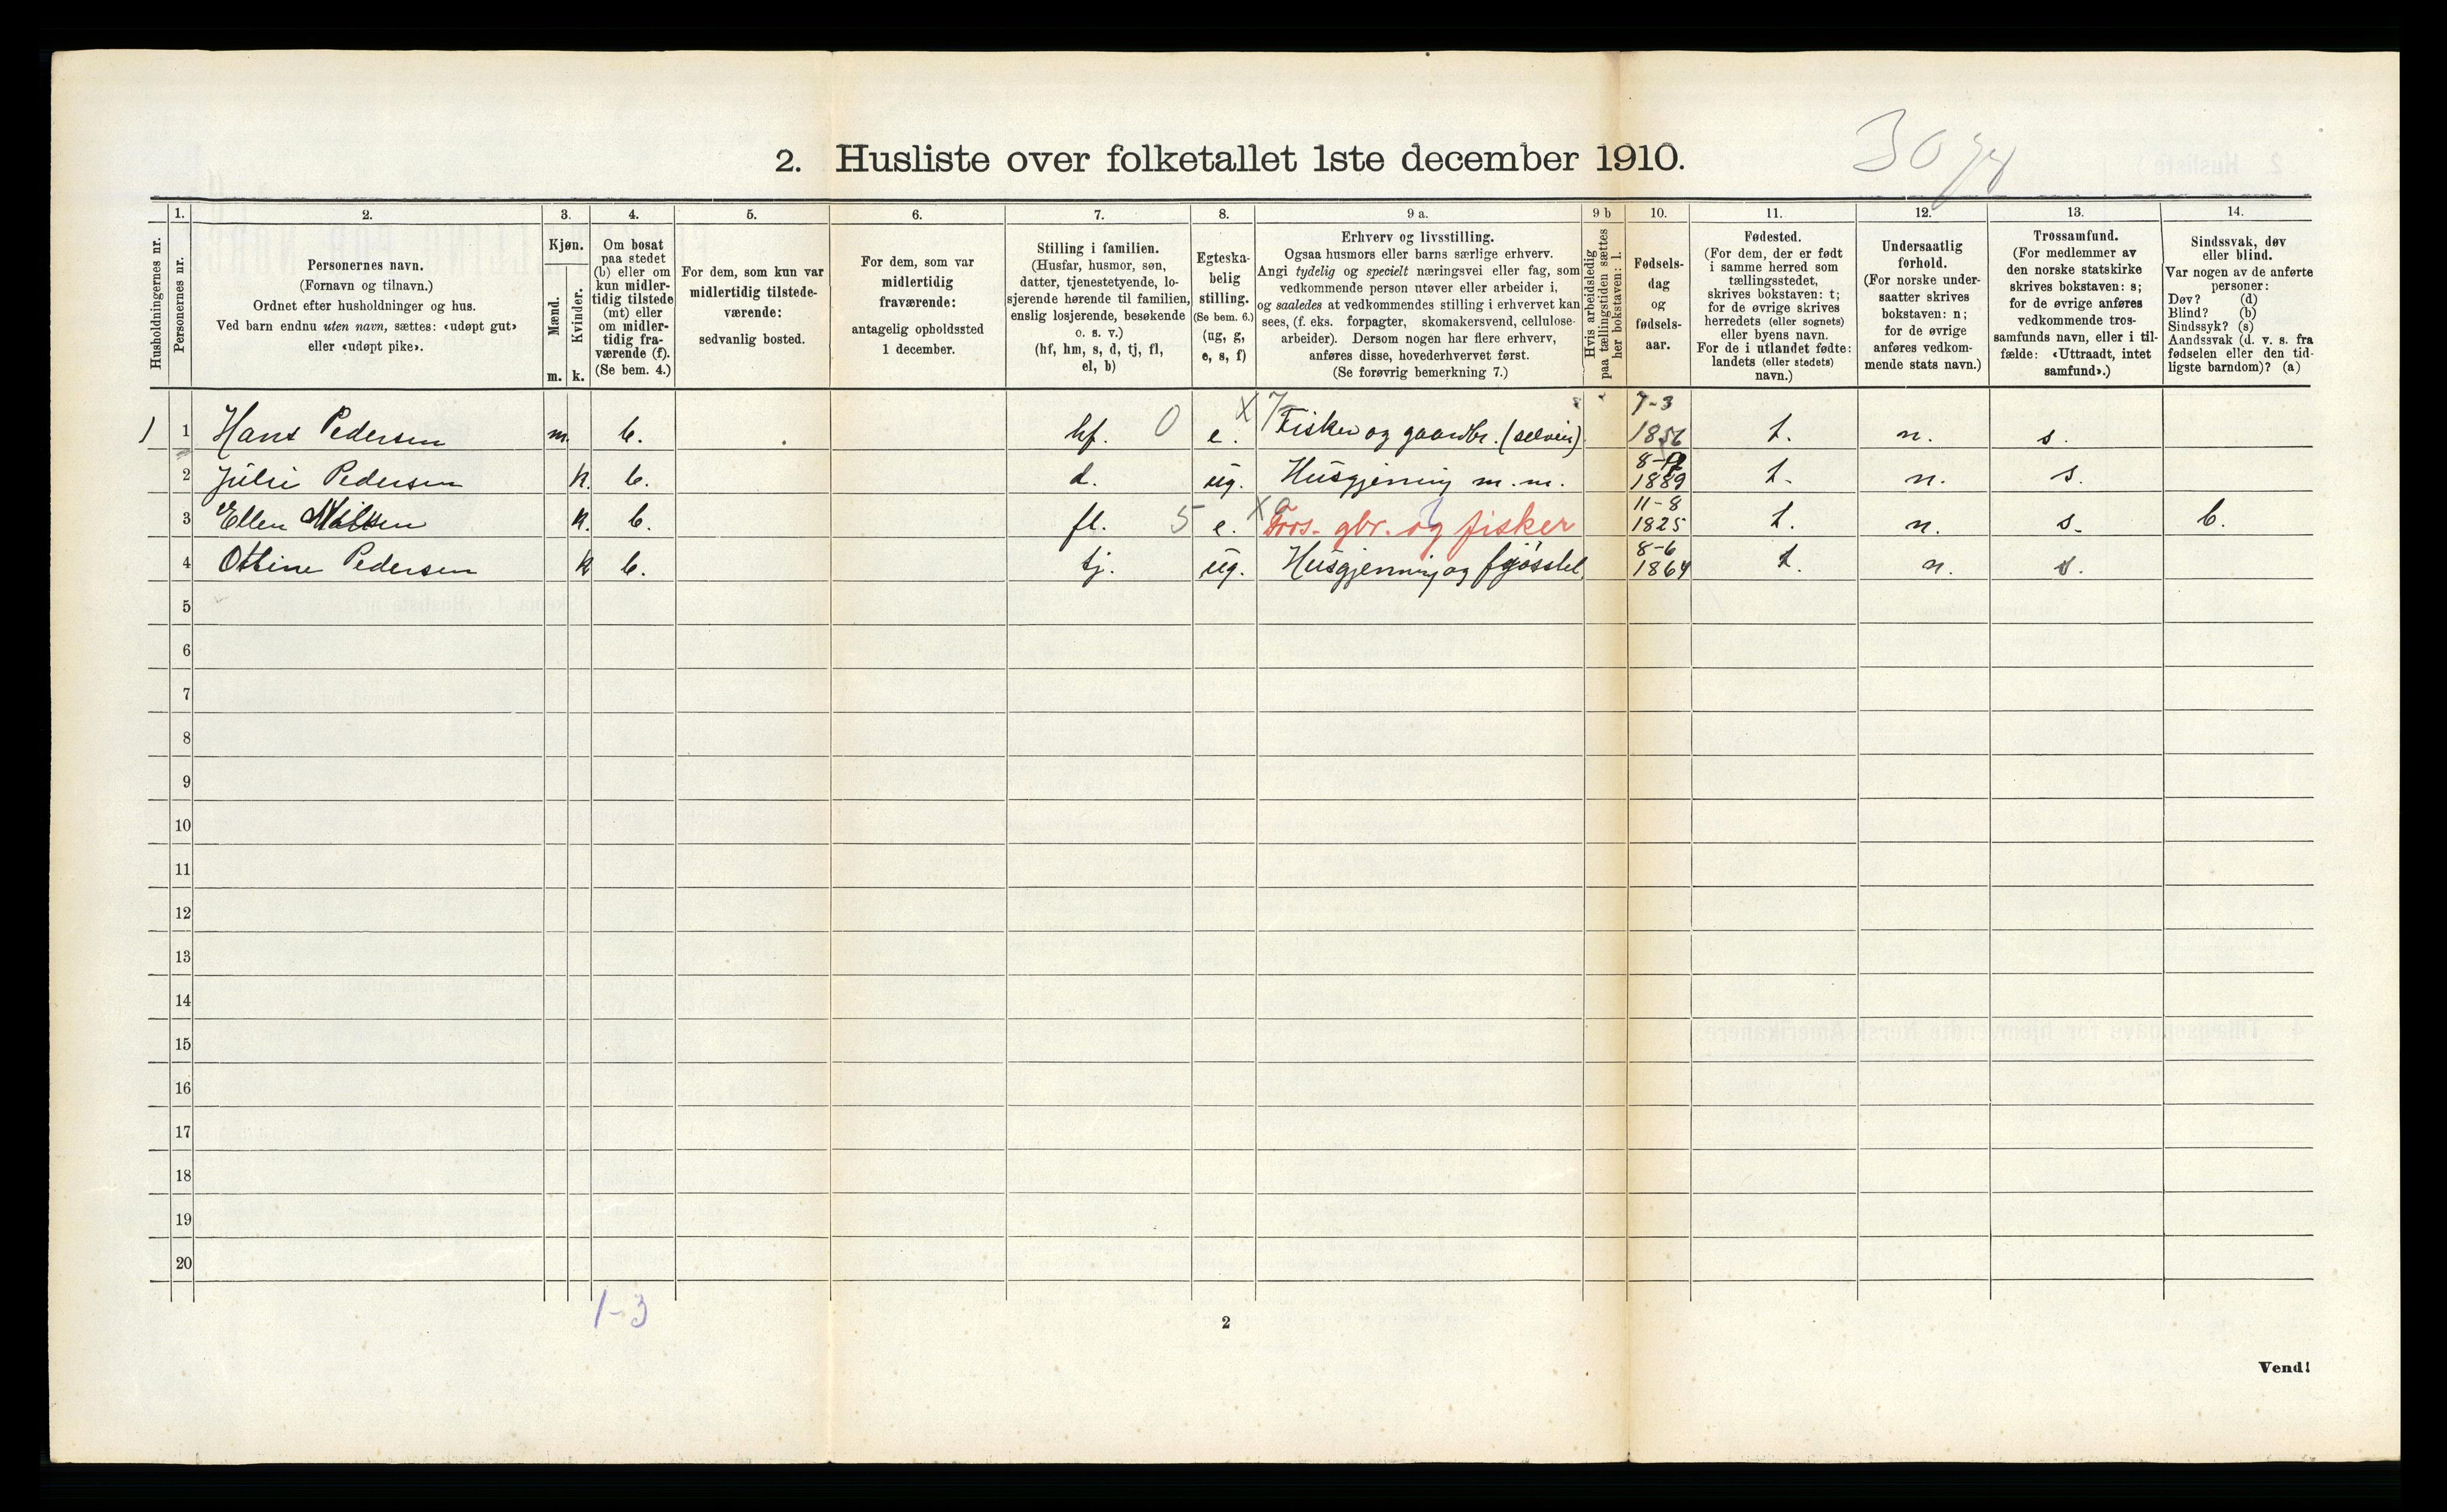 2. Husliste over folketallet 1ste december 1910.
Husholdningernes nr.
1.
Personernes nr.
2.
Personernes navn.
(Fornavn og tilnavn.)
Ordnet efter husholdninger og hus.
Ved barn endnu uten navn, sættes: «udøpt gut»
eller «udøpt pike».
3.
Kjøn.
Mænd.
Kvinder.
m. k.
4.
Om bosat
paa stedet
(b) eller om
kun midler-
tidig tilstede
(mt) eller
om midler-
tidig fra-
værende (f).
(Se bem. 4.)
5.
For dem, som kun var
midlertidig tilstede-
værende:
sedvanlig bosted.
6.
For dem, som var
midlertidig
fraværende:
antagelig opholdssted
1 december.
7.
Stilling i familien.
(Husfar, husmor, søn,
datter, tjenestetyende, lo-
sjerende hørende til familien,
enslig losjerende, besøkende
o. s. v.)
(hf, hm, s, d, tj, fl,
el, b)
8.
Egteska-
belig
stilling.
(Se bem. 6.)
(ug, g,
e, s, f)
9 a.
Erhverv og livsstilling.
Ogsaa husmors eller barns særlige erhverv.
Angi tydelig og specielt næringsvei eller fag, som
vedkommende person utøver eller arbeider i,
og saaledes at vedkommendes stilling i erhvervet kan
sees, (f. eks. forpagter, skomakersvend, cellulose-
arbeider). Dersom nogen har flere erhverv,
anføres disse, hovederhvervet først.
(Se forøvrig bemerkning 7.)
9 b
Hvis arbeidsledig
paa tællingstiden sættes
her bokstaven: l.
10.
Fødsels-
dag
og
fødsels-
aar.
11.
Fødested.
(For dem, der er født
i samme herred som
tællingsstedet,
skrives bokstaven: t;
for de øvrige skrives
herredets (eller sognets)
eller byens navn.
For de i utlandet fødte:
landets (eller stedets)
navn.)
12.
Undersaatlig
forhold.
(For norske under-
saatter skrives
bokstaven: n;
for de øvrige
anføres vedkom-
mende stats navn.)
13.
Trossamfund.
(For medlemmer av
den norske statskirke
skrives bokstaven: s;
for de øvrige anføres
vedkommende tros-
samfunds navn, eller i til-
fælde: «Uttraadt, intet
samfund».)
14.
Sindssvak, døv
eller blind.
Var nogen av de anførte
personer:
Døv? (d)
Blind? (b)
Sindssyk? (s)
Aandssvak (d. v. s. fra
fødselen eller den tid-
ligste barndom)? (a)
1) 1 Hans Pedersen m. b. hf. 0 e. X 7 Fisker og gaardbr. (selveier) 7-3 1856 t. n. s.
2 Julie Pedersen k. b. d. ug. Husgjerning m.m. 1889 t. n. s.
3 Ellen k. b. fl. 5 e. X Fors. gbr. og fisker 11-8 1825 t. n. s. b.
4 Ottine Pedersen k b. tj. ug. Husgjerning og fjøsstel 8-6 1864 t. n. s.
5
6
7
8
9
10
11
12
13
14
15
16
17
18
19
20
1-3
2
Vend!